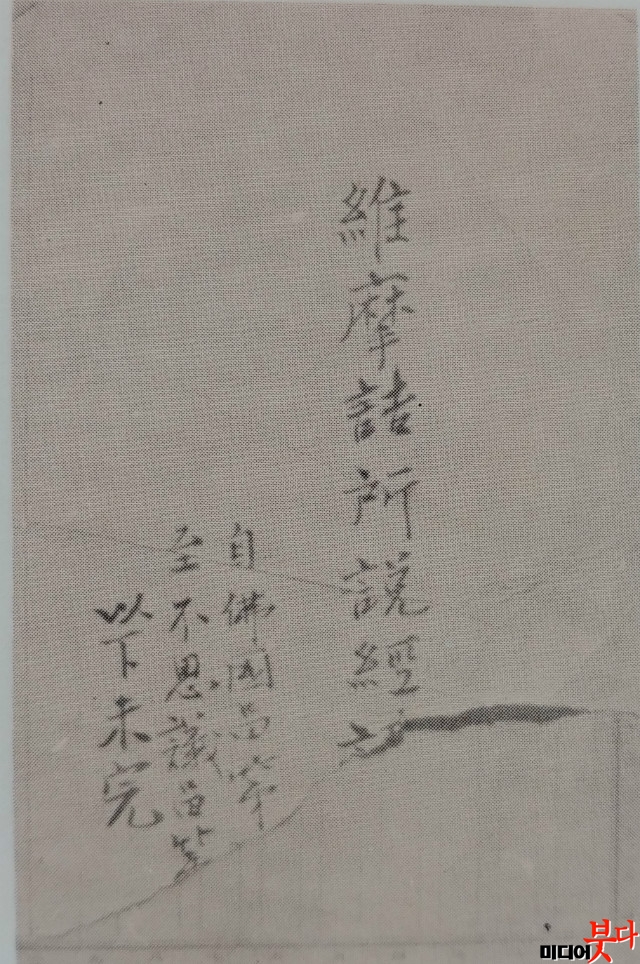 維摩詰所說經
自佛國品第
至不思議品第
以下未完
미디어붓다